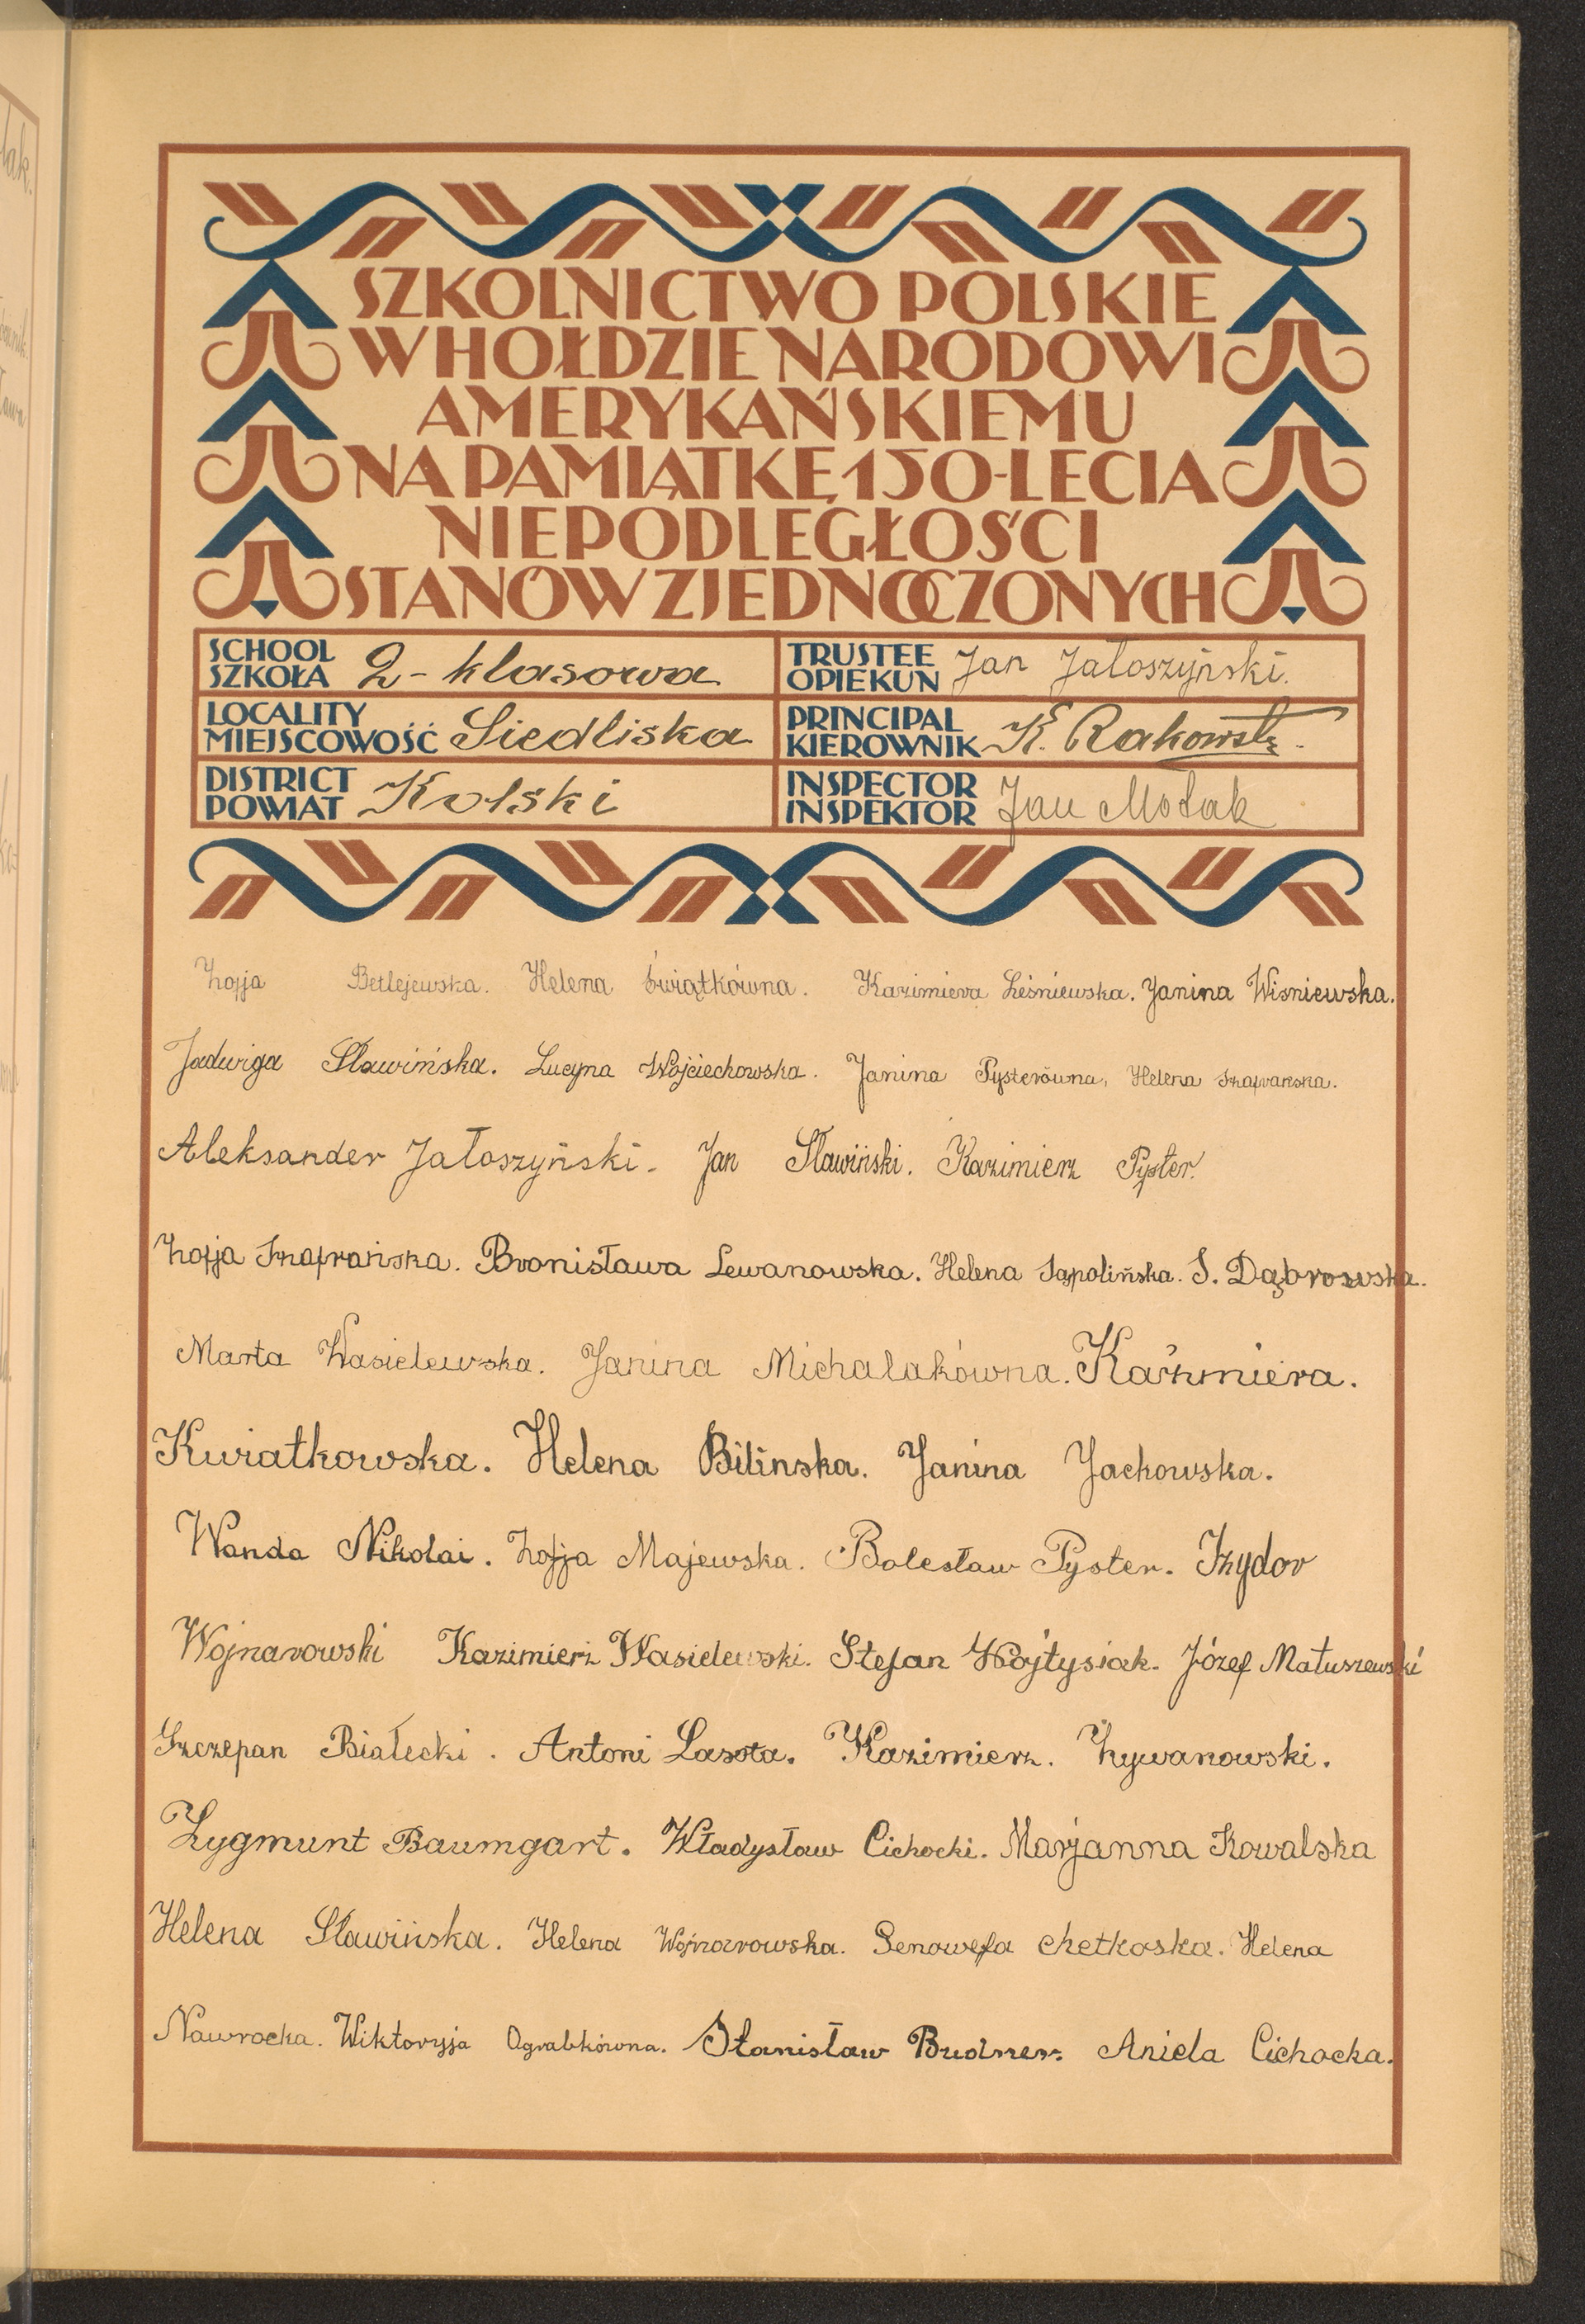 SZKOLNICTWO POLSKIE
W HOŁDZIE NARODOWI
AMERYKAŃSKIEMU
NA PAMIĄTKĘ 150-LECIA
NIEPODLEGŁOŚCI
STANÓW ZJEDNOCZONYCH
SCHOOL
SZKOŁA 2-klasowa
TRUSTEE
OPIEKUN Jan Jałoszyński.
LOCALITY
MIEJSCOWOŚĆ Siedliska
PRINCIPAL
KIEROWNIK K. Rakowski.
DISTRICT
POWIAT Kolski
INSPECTOR
INSPEKTOR Jan Molak
Zofja Betlejewska. Helena Świątkówna. Kazimiera Leśniewska. Janina Wisniewska.
Jadwiga Sławińska. Lucyna Wojciechowska. Janina Pysterówna, Helena Szafrańska.
Aleksander Jałoszyński. Jan Sławiński. Kazimierz Pyster.
Zofja Szafrańska. Bronisława Lewanowska. Helena Sąpolińska. S. Dąbrowska.
Marta Wasielewska. Janina Michalakówna. Kaźmiera.
Kwiatkowska. Helena Bilinska. Janina Jackowska.
Wanda Nikolai. Zofja Majewska. Bolesław Pyster. Izydor
Wojnarowski Kazimierz Wasielewski. Stefan Wojtysiak. Józef Matuszewski
Szczepan Białecki. Antoni Lasota. Kazimierz. Żywanowski.
Zygmunt Baumgart. Władysław Cichocki. Marjanna Kowalska
Helena Sławińska. Helena Wojnarowska. Genowefa chetkoska. Helena
Nawrocka. Wiktoryja Ograbkówna. Stanisław Budner. Aniela Cichocka.